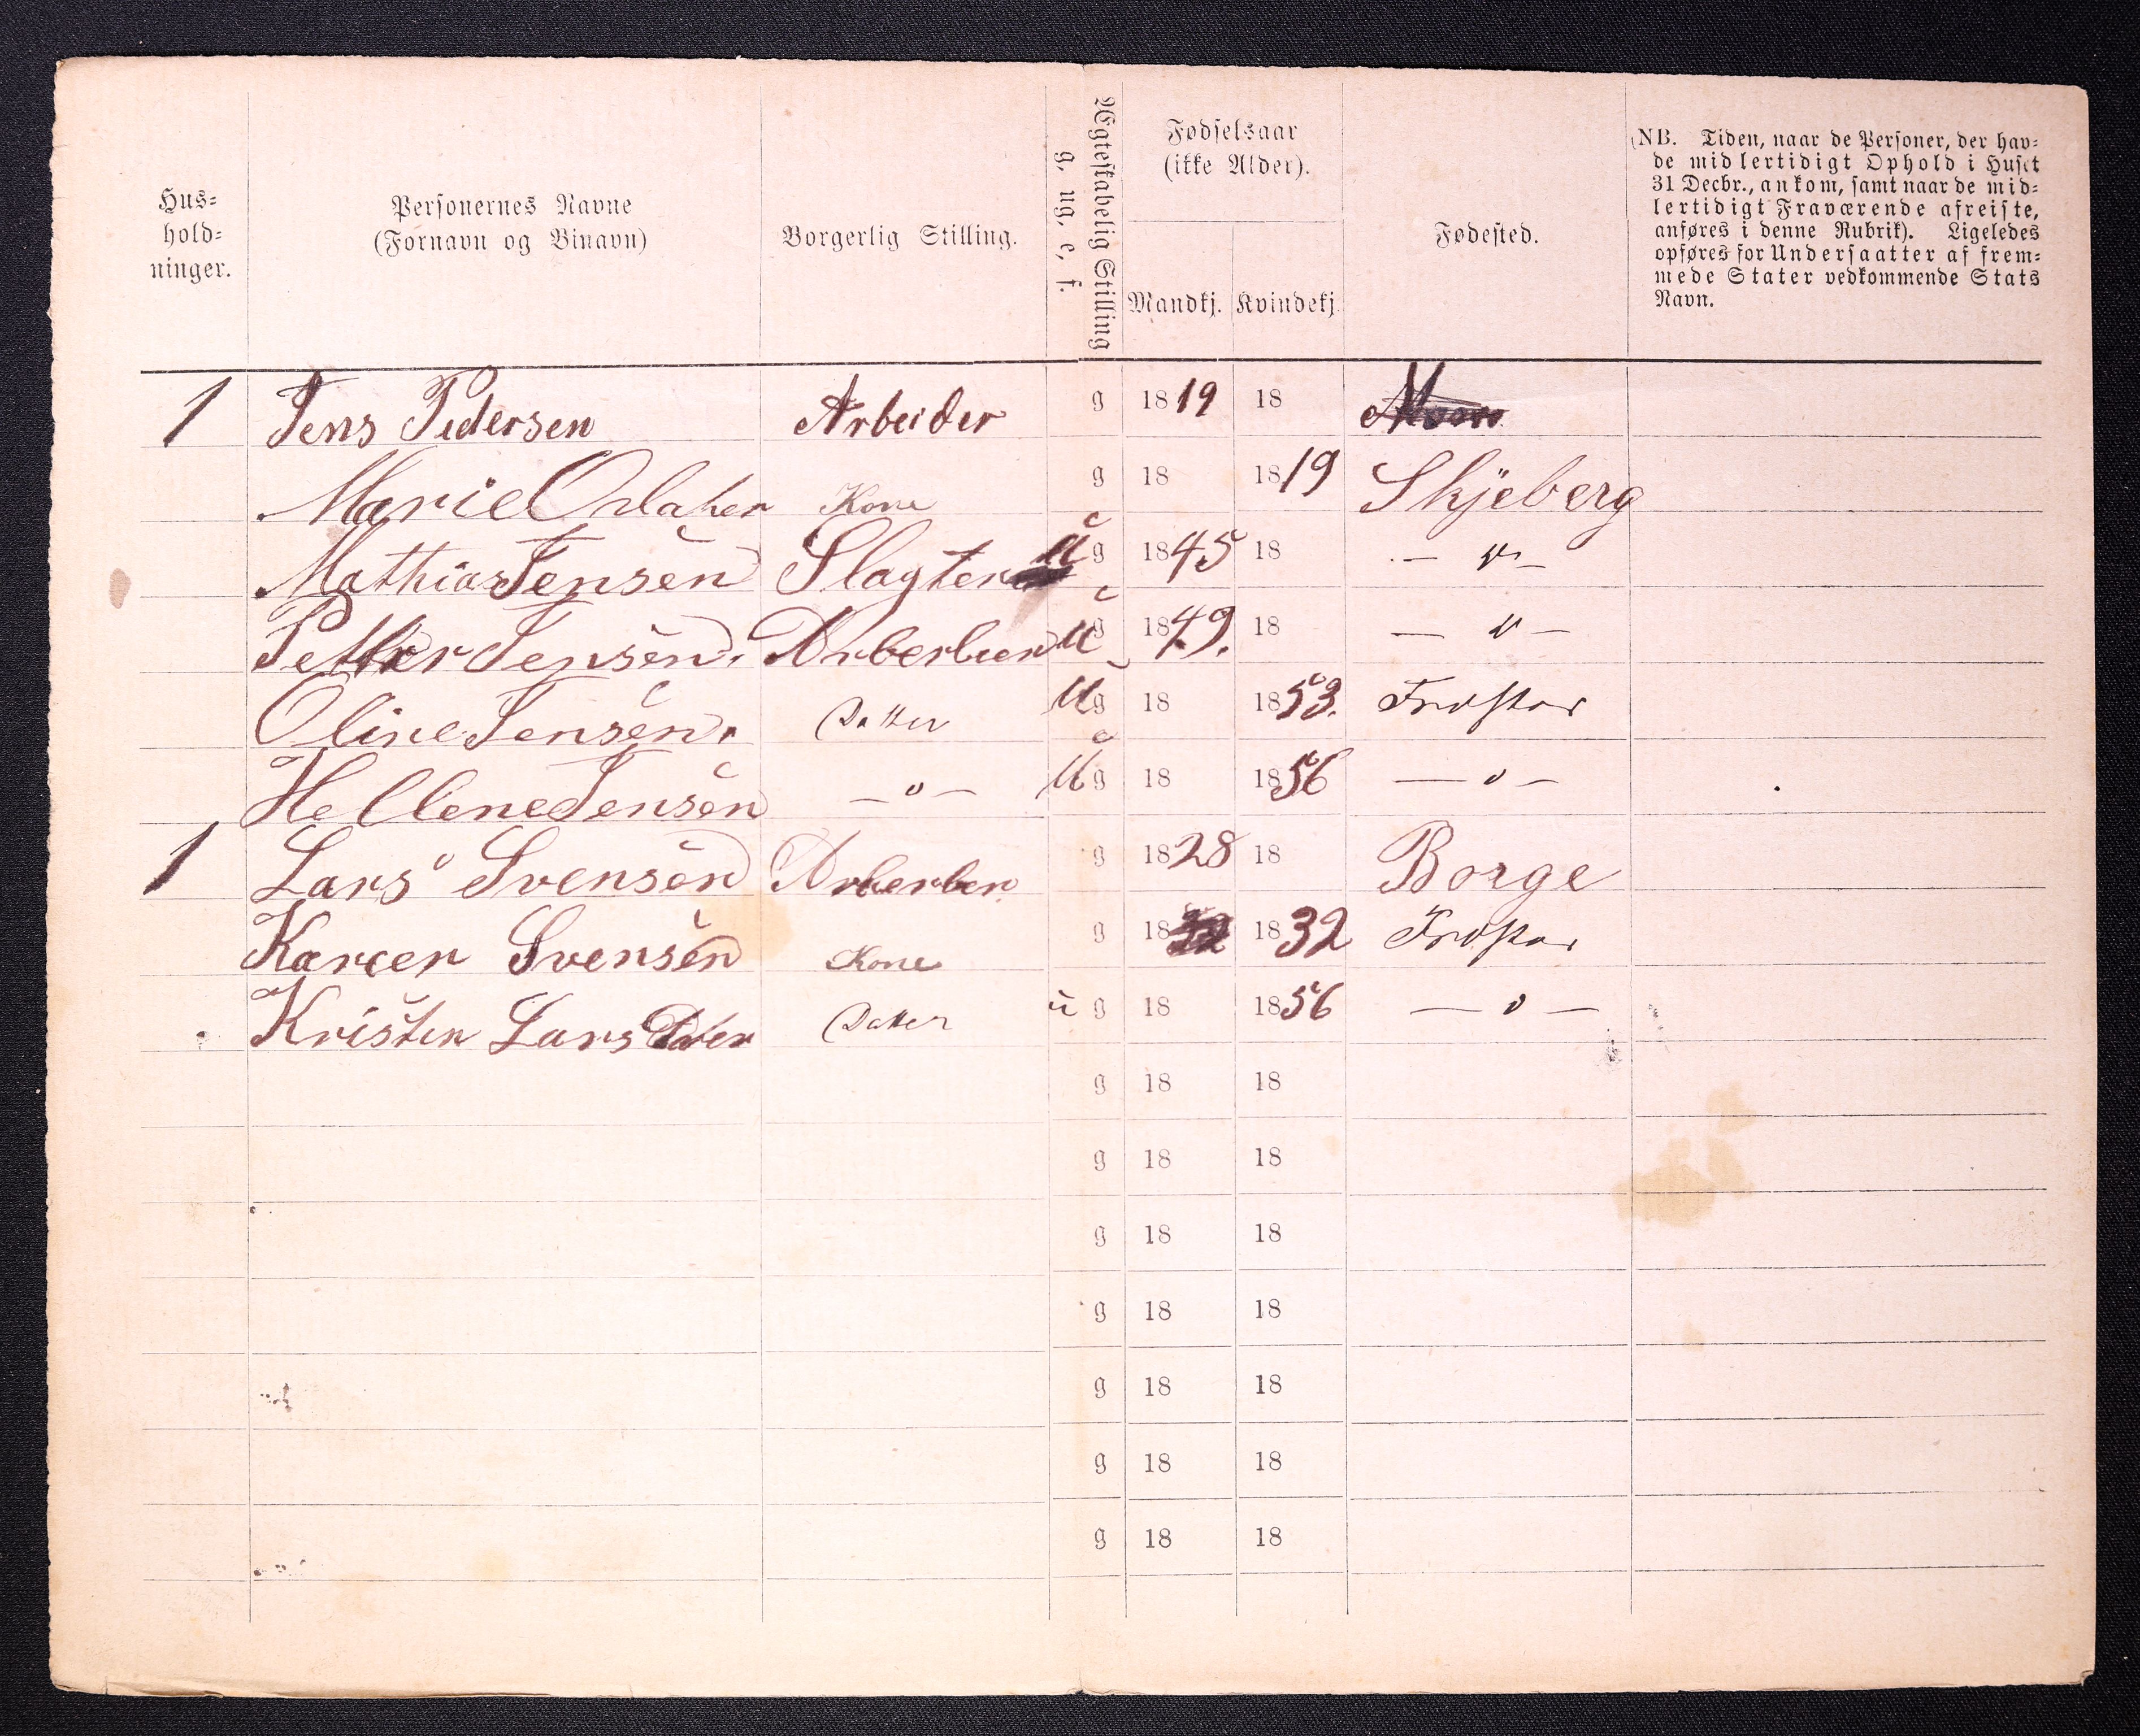 Hus-
hold-
ninger.
Personernes Navne
(Fornavn og Binavn)
Borgerlig Stilling.
Ægteskabelig Stilling
g. ug. e. f.
Fødselsaar
(ikke Alder).
Mandkj. Kvindekj.
Fødested.
NB. Tiden, naar de Personer, der hav-
de midlertidigt Ophold i Huset
31 Decbr., ankom, samt naar de mid-
lertidigt Fraværende afreiste,
anføres i denne Rubrik). Ligeledes
opføres for Undersaatter af frem-
mede Stater vedkommende Stats
Navn.
1 Jens Pedersen Arbeider g 1819 18
Marie Kone g 18 1819 Skjeberg
Mathias Jensen Slagter u g 1845 18 — " —
Petter Jensen. u g 1849. 18 — " —
Oline Jensen. Datter u g 18 1853.
Hellene Jensen — " — u g 18 1856 — " —
1 Lars Svensen g 1828 18 Borge
Svensen Kone g 18 1832
Kristin Lars Datter u g 18 1856 — " —
g 18 18
g 18 18
g 18 18
g 18 18
g 18 18
g 18 18
g 18 18